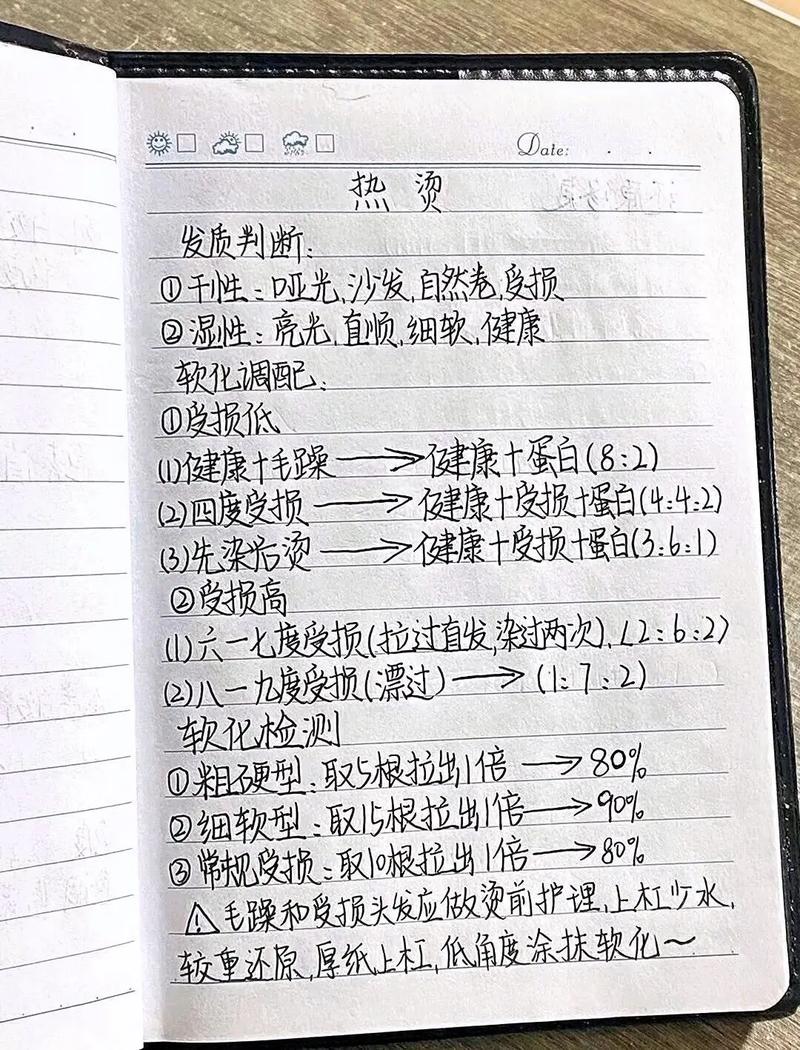 Date:
热 烫
发质判断:
①干性:哑光,沙发,自然卷,受损
②湿性:亮光,直顺,细软,健康
软化调配:
①受损低
(1)健康+毛躁→健康+蛋白(8:2)
(2)四度受损→健康+受损+蛋白(4:4:2)
(3)先染后烫→健康+受损+蛋白(3:6:1)
②受损高
(1)六一七度受损(拉过直发,染过两次).(2:6:2)
(2)八一九度受损(漂过)→(1:7:2)
软化检测
①粗硬型:取5根拉出1倍→80%
②细软型:取15根拉出1倍→90%
③常规受损:取10根拉出1倍→80%
⚠毛躁和受损头发应做烫前护理,上杠少水,
较重还原,厚纸上杠,低角度涂抹软化~